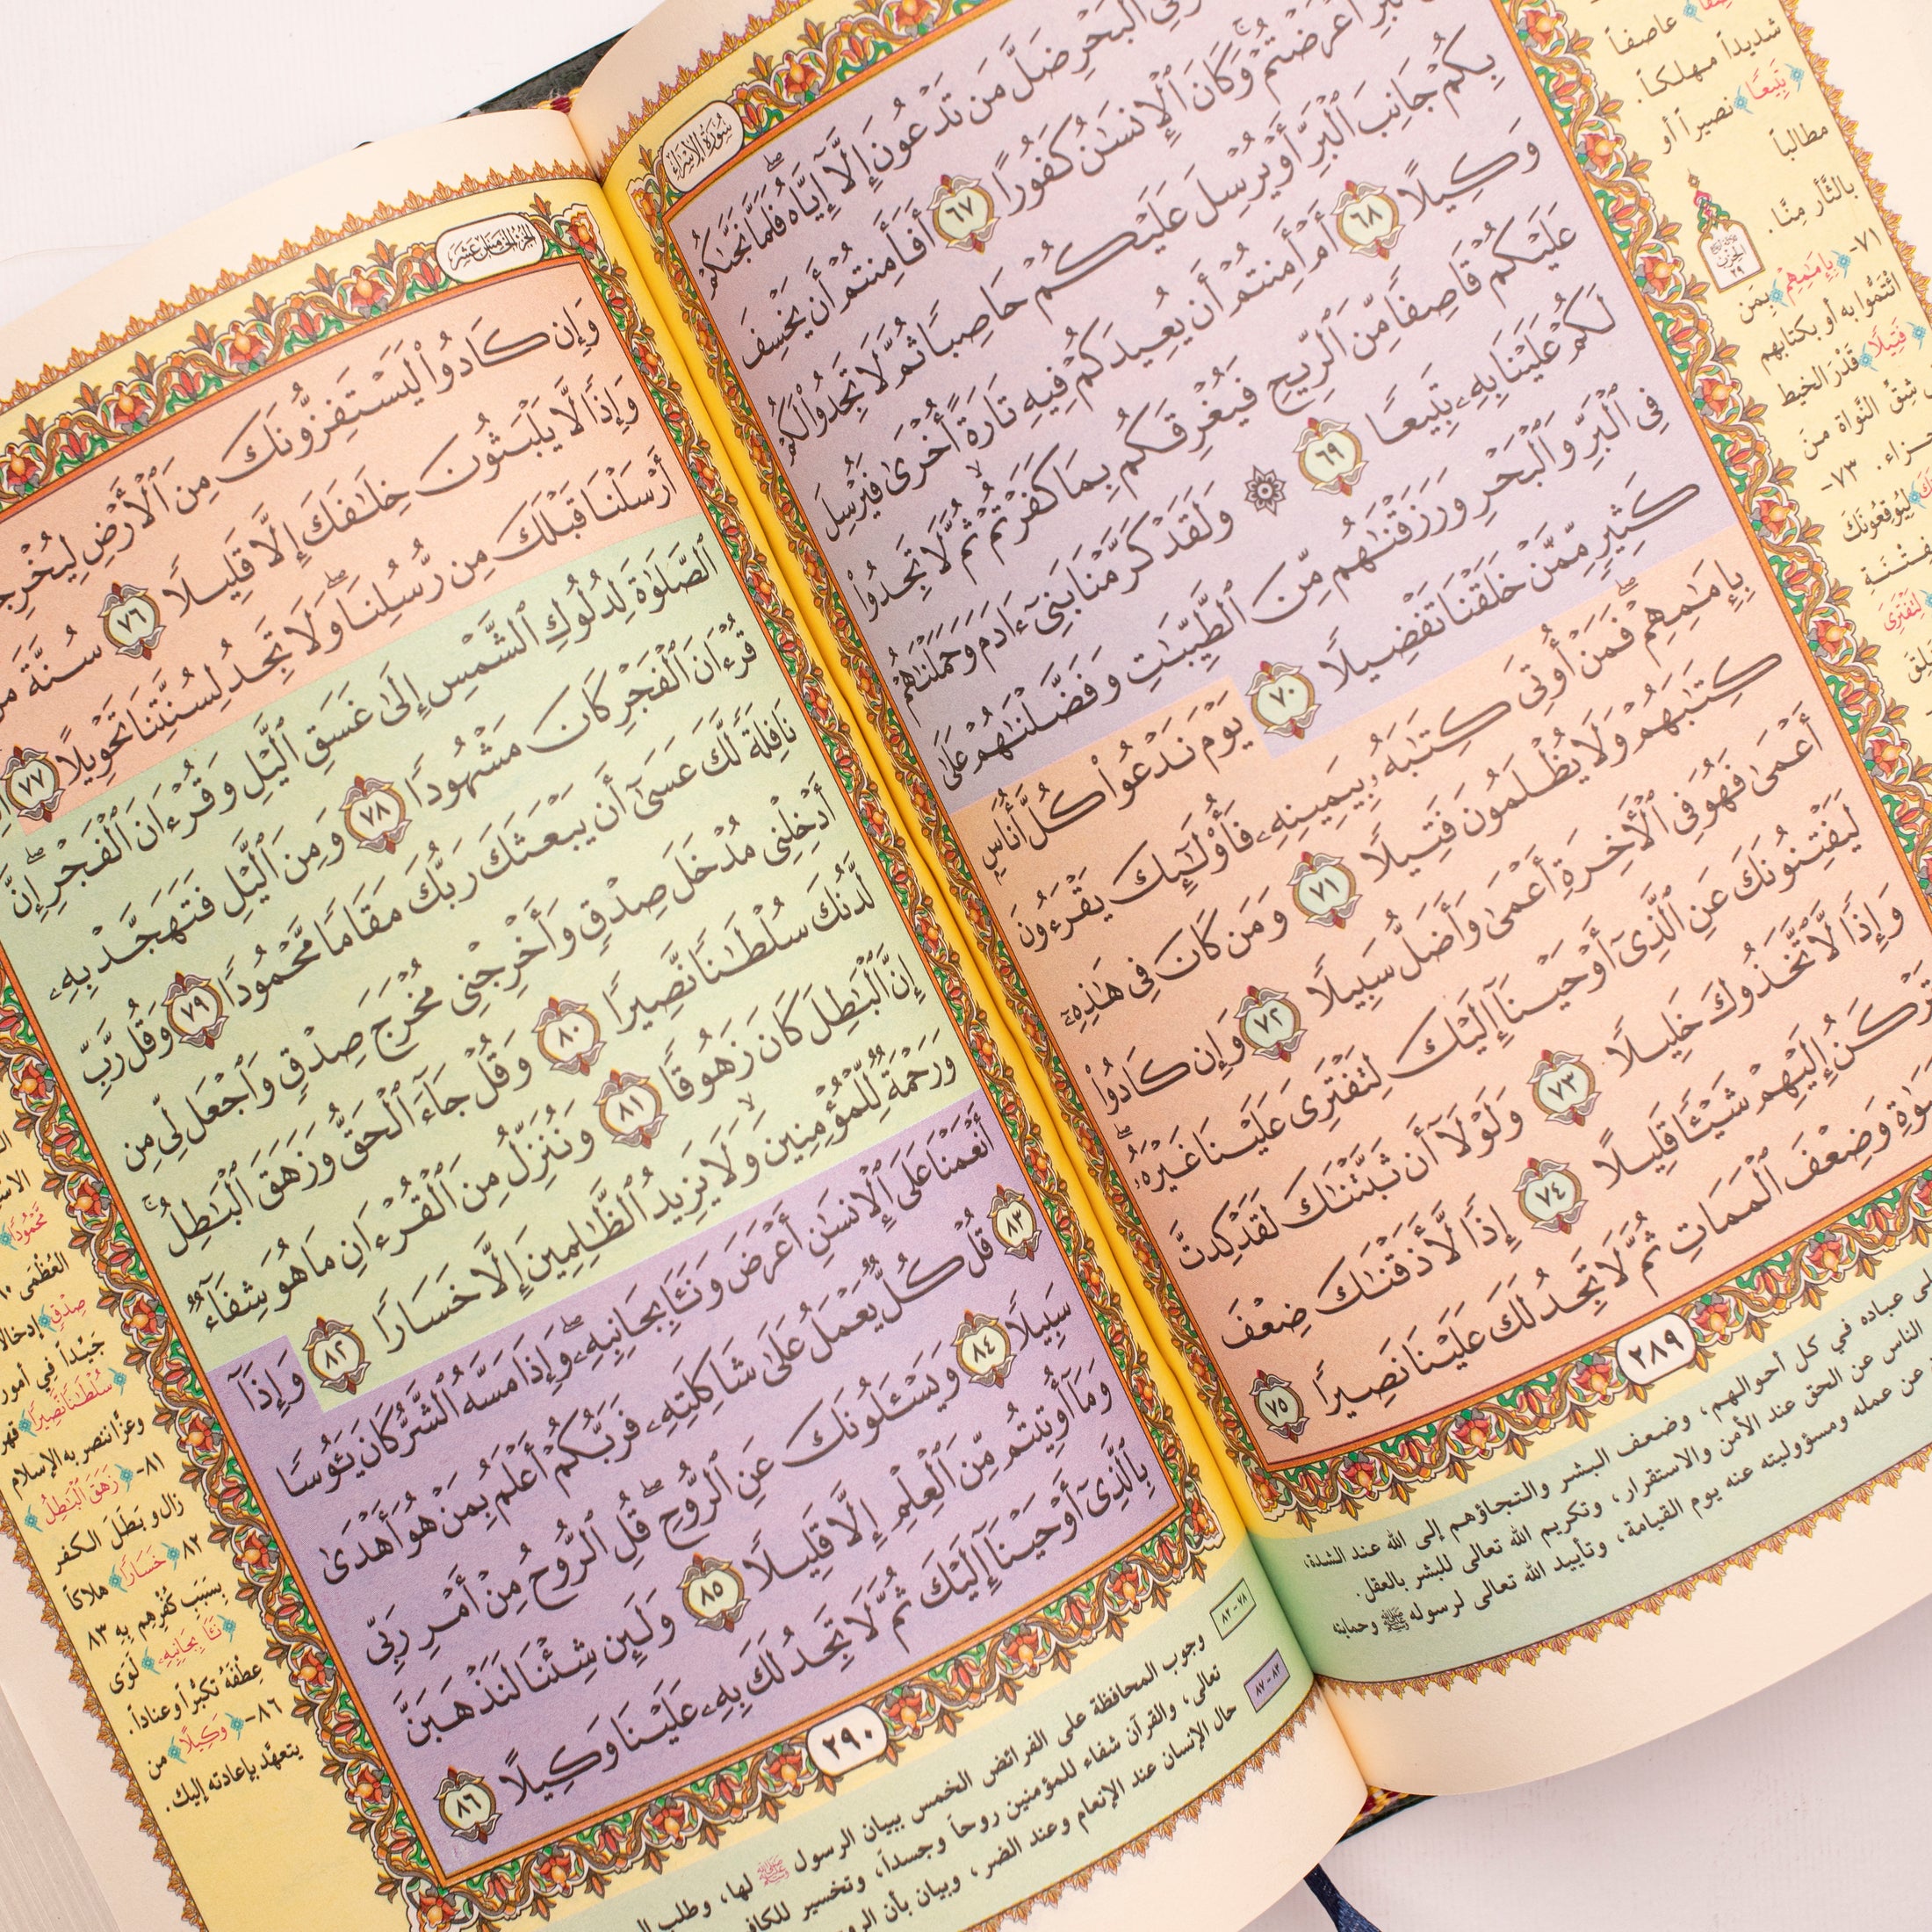 سُورَةُ الإِسْرَاءِ
ٱلْبَحْرِ ضَلَّ مَن تَدْعُونَ إِلَّآ إِيَّاهُ فَلَمَّا نَجَّىٰكُمْ
أَعْرَضْتُمْ وَكَانَ ٱلْإِنسَٰنُ كَفُورًا ٦٧ أَفَأَمِنتُمْ أَن يَخْسِفَ
بِكُمْ جَانِبَ ٱلْبَرِّ أَوْ يُرْسِلَ عَلَيْكُمْ حَاصِبًا ثُمَّ لَا تَجِدُوا۟ لَكُمْ
وَكِيلًا ٦٨ أَمْ أَمِنتُمْ أَن يُعِيدَكُمْ فِيهِ تَارَةً أُخْرَىٰ فَيُرْسِلَ
عَلَيْكُمْ قَاصِفًا مِّنَ ٱلرِّيحِ فَيُغْرِقَكُم بِمَا كَفَرْتُمْ ثُمَّ لَا تَجِدُوا۟
لَكُمْ عَلَيْنَا بِهِۦ تَبِيعًا ٦٩ ۞ وَلَقَدْ كَرَّمْنَا بَنِىٓ ءَادَمَ وَحَمَلْنَٰهُمْ
فِى ٱلْبَرِّ وَٱلْبَحْرِ وَرَزَقْنَٰهُم مِّنَ ٱلطَّيِّبَٰتِ وَفَضَّلْنَٰهُمْ عَلَىٰ
كَثِيرٍ مِّمَّنْ خَلَقْنَا تَفْضِيلًا ٧٠ يَوْمَ نَدْعُوا۟ كُلَّ أُنَاسٍۭ
بِإِمَٰمِهِمْ ۖ فَمَنْ أُوتِىَ كِتَٰبَهُۥ بِيَمِينِهِۦ فَأُو۟لَٰٓئِكَ يَقْرَءُونَ
كِتَٰبَهُمْ وَلَا يُظْلَمُونَ فَتِيلًا ٧١ وَمَن كَانَ فِى هَٰذِهِۦٓ
أَعْمَىٰ فَهُوَ فِى ٱلْأَخِرَةِ أَعْمَىٰ وَأَضَلُّ سَبِيلًا ٧٢ وَإِن كَادُوا۟
لَيَفْتِنُونَكَ عَنِ ٱلَّذِىٓ أَوْحَيْنَآ إِلَيْكَ لِتَفْتَرِىَ عَلَيْنَا غَيْرَهُۥ ۖ
وَإِذًا لَّٱتَّخَذُوكَ خَلِيلًا ٧٣ وَلَوْلَآ أَن ثَبَّتْنَٰكَ لَقَدْ كِدتَّ
تَرْكَنُ إِلَيْهِمْ شَيْـًٔا قَلِيلًا ٧٤ إِذًا لَّأَذَقْنَٰكَ ضِعْفَ
وَضِعْفَ ٱلْمَمَاتِ ثُمَّ لَا تَجِدُ لَكَ عَلَيْنَا نَصِيرًا ٧٥
٢٨٩
عاصفاً
شديداً مهلكاً.
﴿تَبِيعًا﴾ نصيراً أو
مطالباً
بالثأر منَّا.
٧١- ﴿بِإِمَٰمِهِمْ﴾ بِمَن
ائتَمُّوا به أو بكتابهم
﴿فَتِيلًا﴾ قَدْرَ الخيط
شِقِّ النَّواة من
٧٣-
ليُوقِعُونَكَ
عباده في كل أحوالهم، وضعف البشر والتجاؤهم إلى الله عند الشدة،
الناس عن الحق عند الأمن والاستقرار، وتكريم الله تعالى للبشر بالعقل.
عن عمله ومسؤوليته عنه يوم القيامة، وتأييد الله تعالى لرسوله ﷺ وحمايته
الجُزْءُ الخَامِسَ عَشَرَ
وَإِن كَادُوا۟ لَيَسْتَفِزُّونَكَ مِنَ ٱلْأَرْضِ
وَإِذًا لَّا يَلْبَثُونَ خِلَٰفَكَ إِلَّا قَلِيلًا ٧٦ سُنَّةَ
أَرْسَلْنَا قَبْلَكَ مِن رُّسُلِنَا ۖ وَلَا تَجِدُ لِسُنَّتِنَا تَحْوِيلًا ٧٧
ٱلصَّلَوٰةَ لِدُلُوكِ ٱلشَّمْسِ إِلَىٰ غَسَقِ ٱلَّيْلِ وَقُرْءَانَ ٱلْفَجْرِ ۖ إِنَّ
قُرْءَانَ ٱلْفَجْرِ كَانَ مَشْهُودًا ٧٨ وَمِنَ ٱلَّيْلِ فَتَهَجَّدْ بِهِۦ
نَافِلَةً لَّكَ عَسَىٰٓ أَن يَبْعَثَكَ رَبُّكَ مَقَامًا مَّحْمُودًا ٧٩ وَقُل رَّبِّ
أَدْخِلْنِى مُدْخَلَ صِدْقٍ وَأَخْرِجْنِى مُخْرَجَ صِدْقٍ وَٱجْعَل لِّى مِن
لَّدُنكَ سُلْطَٰنًا نَّصِيرًا ٨٠ وَقُلْ جَآءَ ٱلْحَقُّ وَزَهَقَ ٱلْبَٰطِلُ ۚ
إِنَّ ٱلْبَٰطِلَ كَانَ زَهُوقًا ٨١ وَنُنَزِّلُ مِنَ ٱلْقُرْءَانِ مَا هُوَ شِفَآءٌ
وَرَحْمَةٌ لِّلْمُؤْمِنِينَ ۙ وَلَا يَزِيدُ ٱلظَّٰلِمِينَ إِلَّا خَسَارًا ٨٢ وَإِذَآ
أَنْعَمْنَا عَلَى ٱلْإِنسَٰنِ أَعْرَضَ وَنَـَٔا بِجَانِبِهِۦ ۖ وَإِذَا مَسَّهُ ٱلشَّرُّ كَانَ يَـُٔوسًا
٨٣ قُلْ كُلٌّ يَعْمَلُ عَلَىٰ شَاكِلَتِهِۦ فَرَبُّكُمْ أَعْلَمُ بِمَنْ هُوَ أَهْدَىٰ
سَبِيلًا ٨٤ وَيَسْـَٔلُونَكَ عَنِ ٱلرُّوحِ ۖ قُلِ ٱلرُّوحُ مِنْ أَمْرِ رَبِّى
وَمَآ أُوتِيتُم مِّنَ ٱلْعِلْمِ إِلَّا قَلِيلًا ٨٥ وَلَئِن شِئْنَا لَنَذْهَبَنَّ
بِٱلَّذِىٓ أَوْحَيْنَآ إِلَيْكَ ثُمَّ لَا تَجِدُ لَكَ بِهِۦ عَلَيْنَا وَكِيلًا ٨٦
٢٩٠
جَيِّداً في أمور
﴿سُلْطَٰنًا نَّصِيرًا﴾ قهر
وعزّاً ننصر به الإسلام
٨١- ﴿زَهَقَ ٱلْبَٰطِلُ﴾
زال و بَطَلَ الكفر
٨٢ ﴿خَسَارًا﴾ هلاكاً
بِسَبَب كُفْرِهِم بِهِ ٨٣
﴿نَـَٔا بِجَانِبِهِۦ﴾ لَوَى
عِطْفَهُ تكبُّراً وعناداً.
٨٦- ﴿وَكِيلًا﴾ من
يتعهَّد بإعادته إليك.
٧٨-٨٢
وجوب المحافظة على الفرائض الخمس ببيان الرسول ﷺ لها، وطلب
تعالى، والقرآن شفاء للمؤمنين روحاً وجسداً، وتخسير
٨٣-٨٧
حال الإنسان عند الإنعام وعند الضر، وبيان بأن